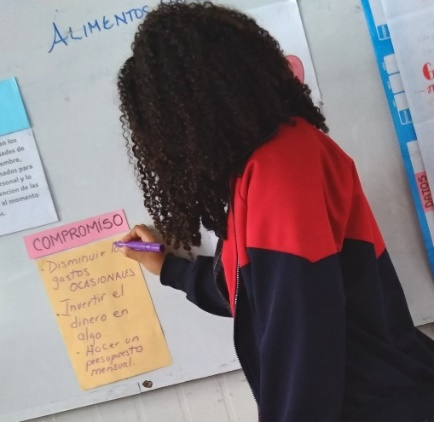 ALIMENTOS
an los
ades de
embre,
sados para
ersonal y la
vencion de las
al momento
s.
COMPROMISO
- Disminuir
gastos
OCASIONALES
- Invertir el
dinero en
algo
- Hacer un
presupuesto
mensual.
DATOS